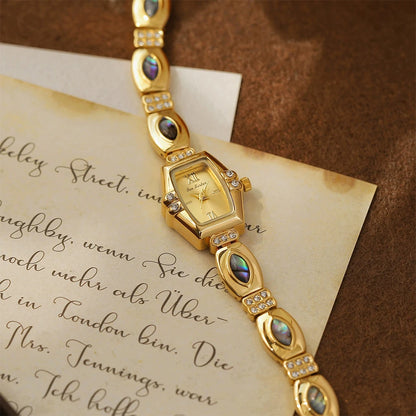 keley Street, im
XII
loughby, wenn Sie die
noch mehr als Über-
h in London bin. Die
Mrs. Jennings, war
n. Ich hoff